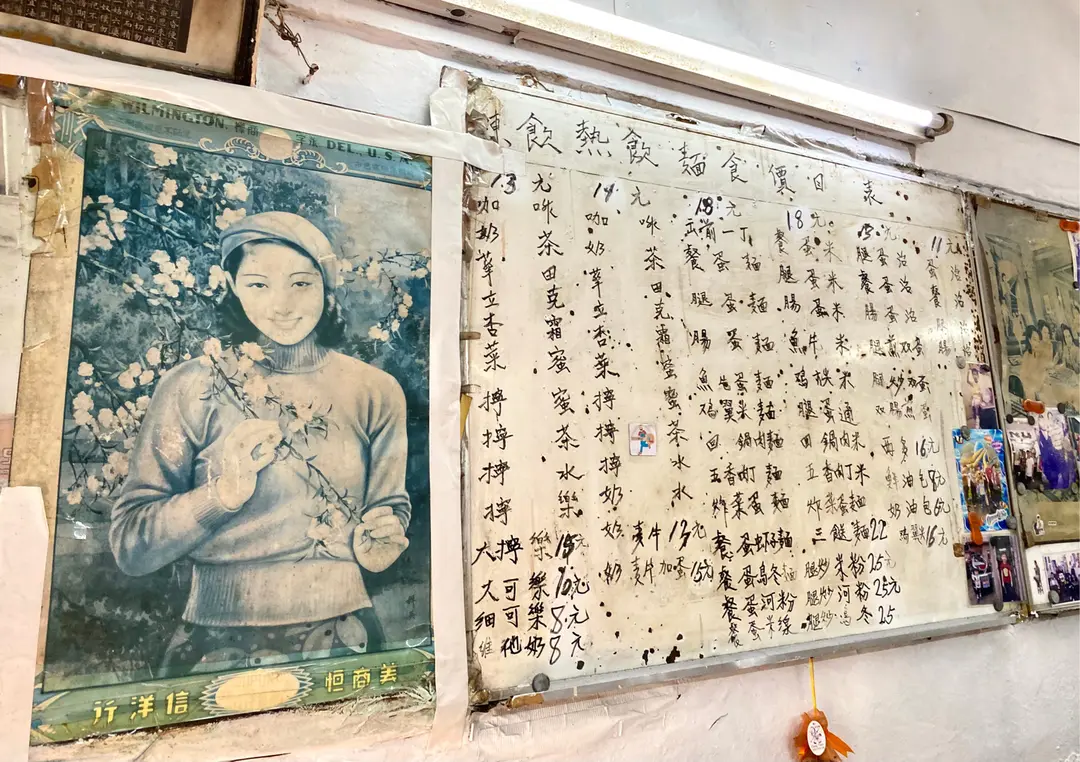 WILMINGTON, DEL., U.S.A.
行洋信 恒商美
飲熱飲 麵食價目表
13元
咖啡
奶茶
華田
立克
杏霜
菜蜜
擰蜜
擰茶
擰水
擰樂
大擰樂15元
大可樂10元
細可樂8元
維他奶8元
14元
咖啡
奶茶
華田
立克
杏霜
菜蜜
擰蜜
擰茶
擰水
奶水
奶麦片13元
奶麦片加蛋15元
18元
出前一丁
餐蛋麵
腿蛋麵
腸蛋麵
魚蛋麵
鸡翼麵
回鍋肉麵
五香肉丁麵
炸菜蛋麵
餐蛋虾子麵
餐蛋烏冬麵
餐蛋河粉
餐蛋米線
18元
餐蛋米
腿蛋米
腸蛋米
魚片米
鸡扒米
腿蛋通
回鍋肉米
五香肉丁米
炸菜蛋麵
三餸麵22
腿炒米粉25元
腿炒河粉25元
腿炒烏冬25
元
腿蛋治
餐蛋治
腸蛋治
腿煎双蛋
腿炒双蛋
双腸煎蛋
西多16元
鮮油包8元
奶油包6元
鸡翼16元
11元
蛋治
餐治
腸治